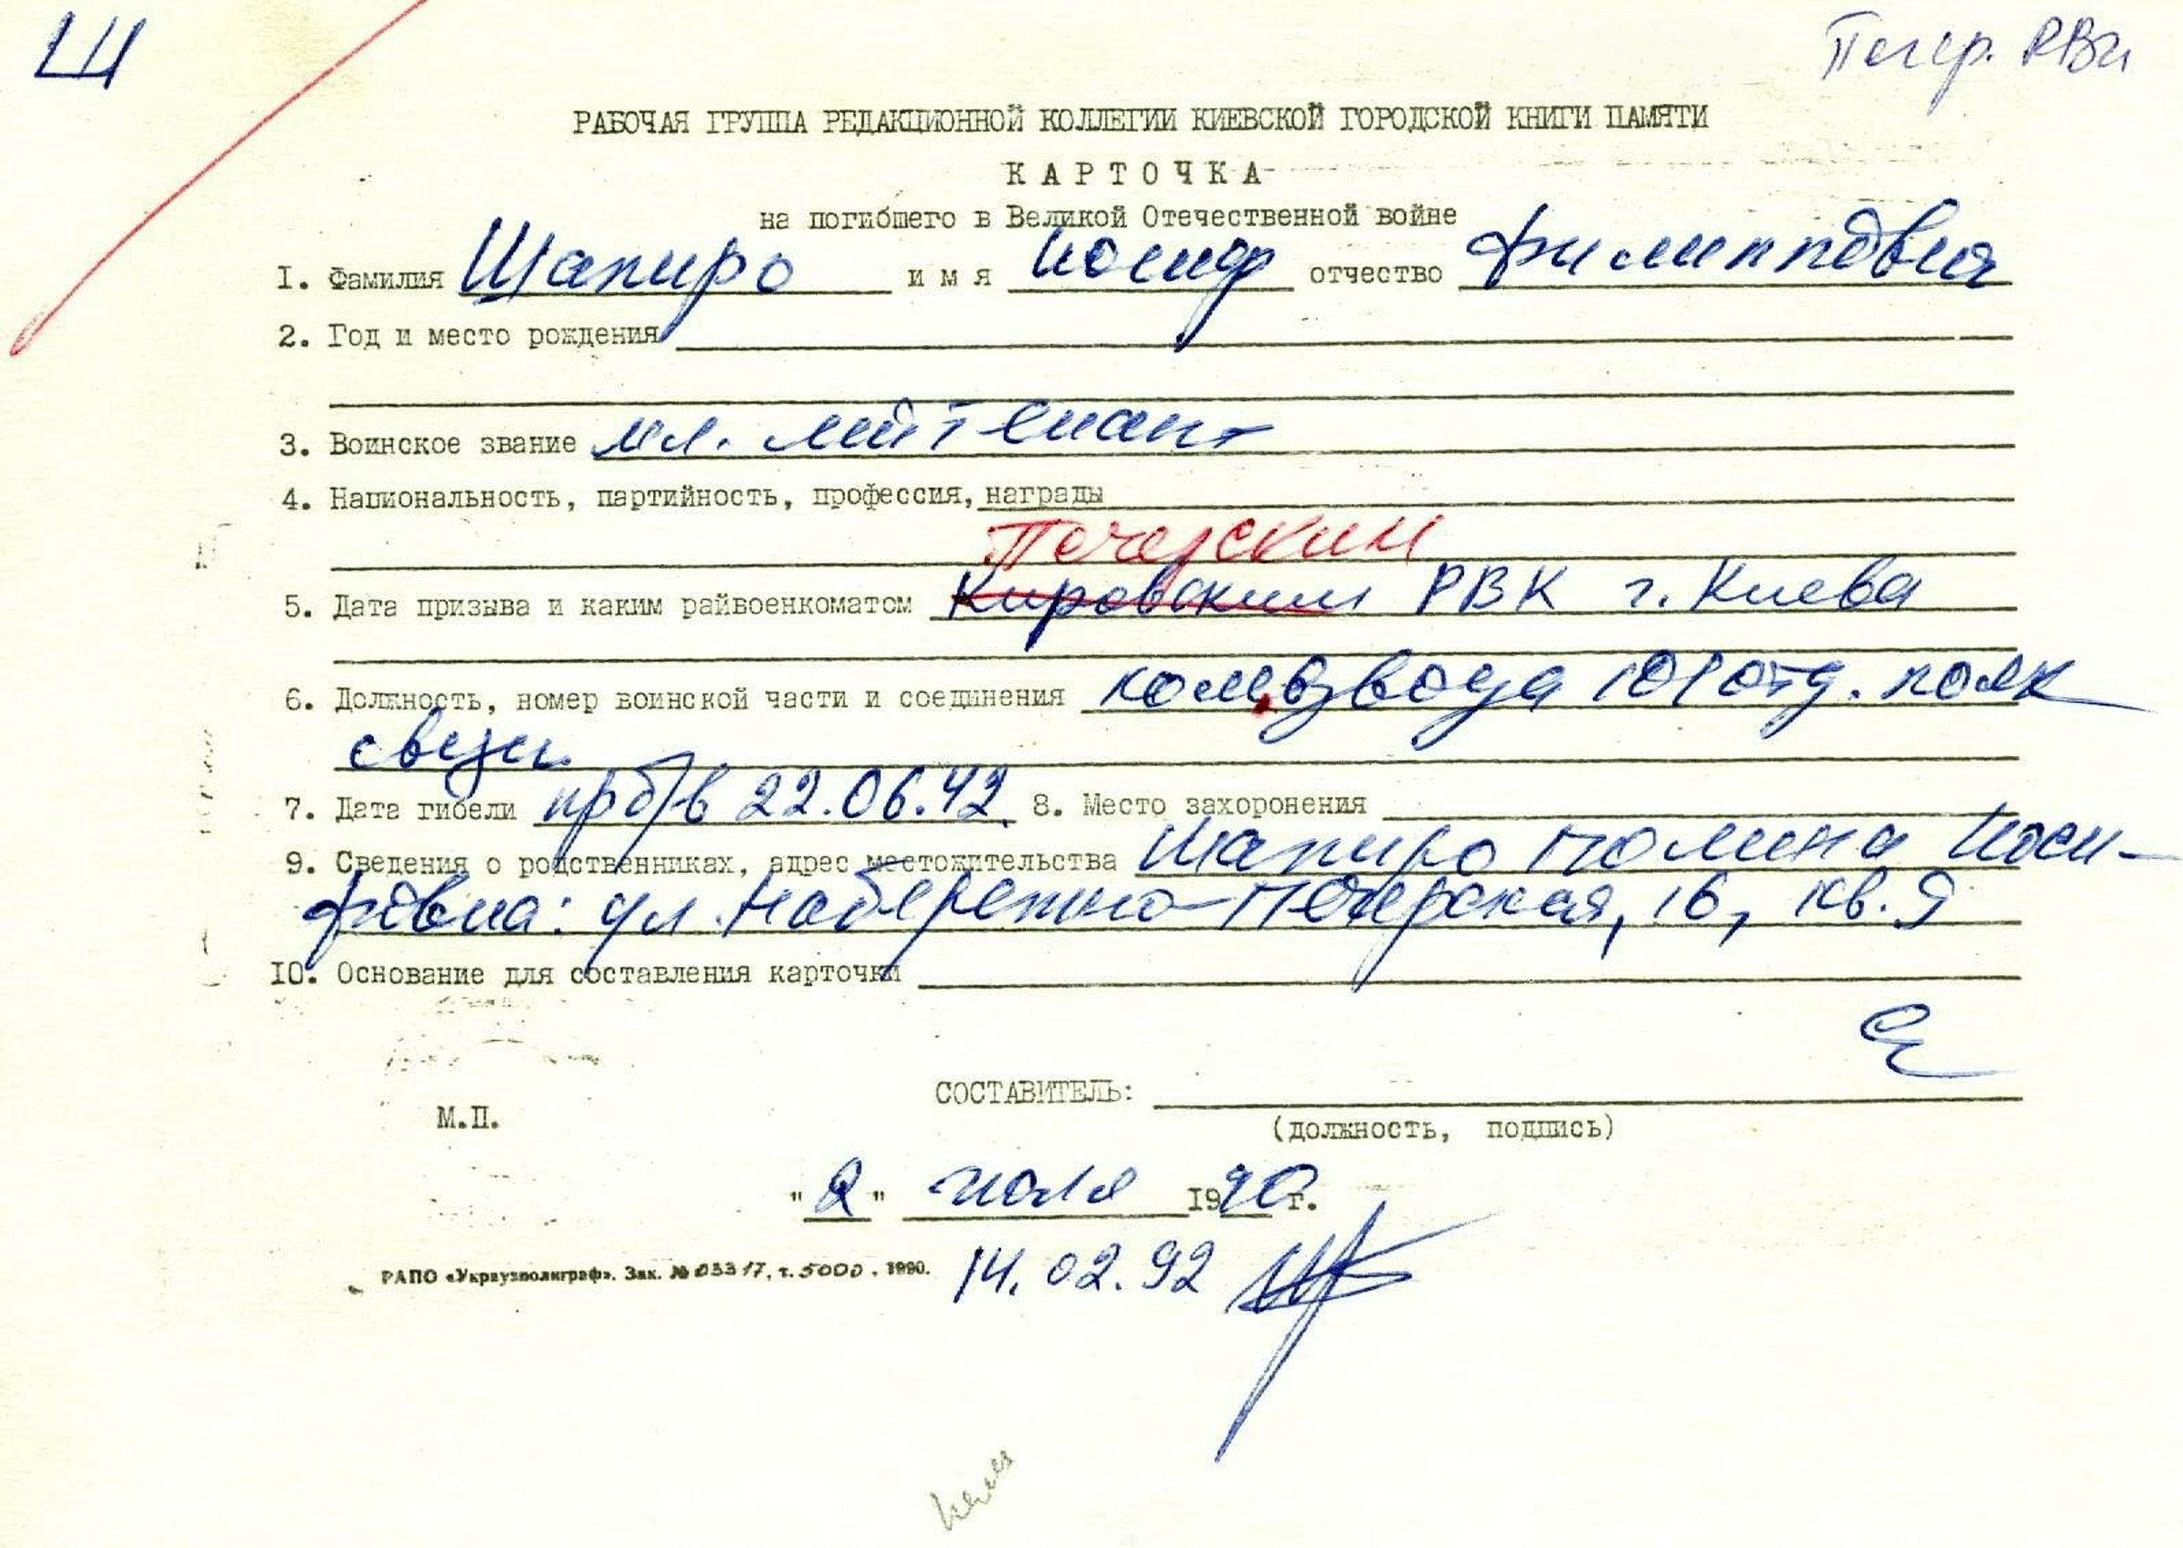 Ш
Печер. РВК
РАБОЧАЯ ГРУППА РЕДАКЦИОННОЙ КОЛЛЕГИИ КИЕВСКОЙ ГОРОДСКОЙ КНИГИ ПАМЯТИ
КАРТОЧКА
на погибшего в Великой Отечественной войне
I. Фамилия Шапиро имя Иосиф отчество Филиппович
2. Год и место рождения
3. Воинское звание мл. лейтенант
4. Национальность, партийность, профессия, награды
Печерским
5. Дата призыва и каким райвоенкоматом Кировским РВК г. Киева
6. Должность, номер воинской части и соединения ком. взвода 101 отд. полк
связи
7. Дата гибели прб/в 22.06.42. 8. Место захоронения
9. Сведения о родственниках, адрес местожительства Шапиро Полина Иоси-
фовна: ул. Набережно-Печерская, 16, кв. 9
I0. Основание для составления карточки
СОСТАВИТЕЛЬ:
М.П.
(должность, подпись)
"2" июля 1990 г.
РАПО «Укрвузполиграф». Зак. № 03317, т. 5000. 1990.
14.02.92